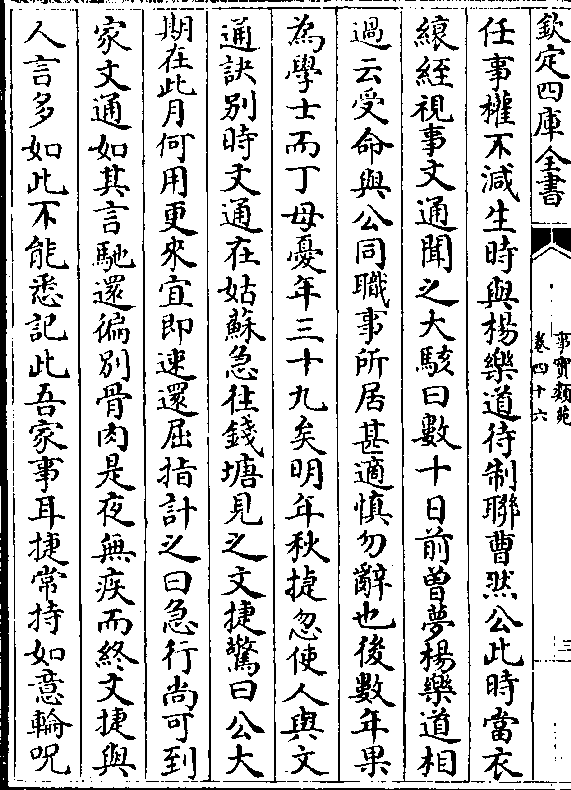 欽定四庫全書
事實類苑
卷四十六
三
任事權不減生時與楊樂道待制聯曹然公此時當衣
縗絰視事文通聞之大駭曰數十日前曽夢楊樂道相
過云受命與公同職事所居甚適慎勿辭也後數年果
為學士而丁母憂年三十九矣明年秋捷忽使人與文
通訣别時文通在姑蘇急往錢塘見之文捷驚曰公大
期在此月何用更來宜即速還屈指計之曰急行尚可到
家文通如其言馳還徧别骨肉是夜無疾而終文捷與
人言多如此不能悉記此吾家事耳捷常持如意輪呪